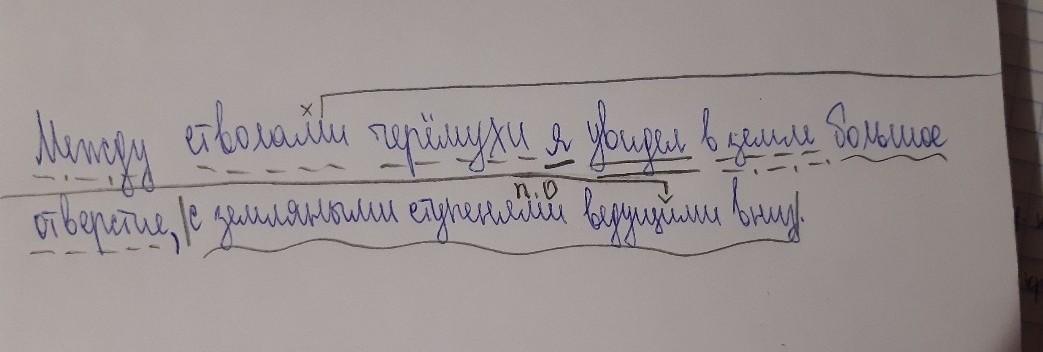 х
Между стволами черёмухи я увидел в земле большое
п.о
отверстие, с земляными ступенями ведущими вниз.